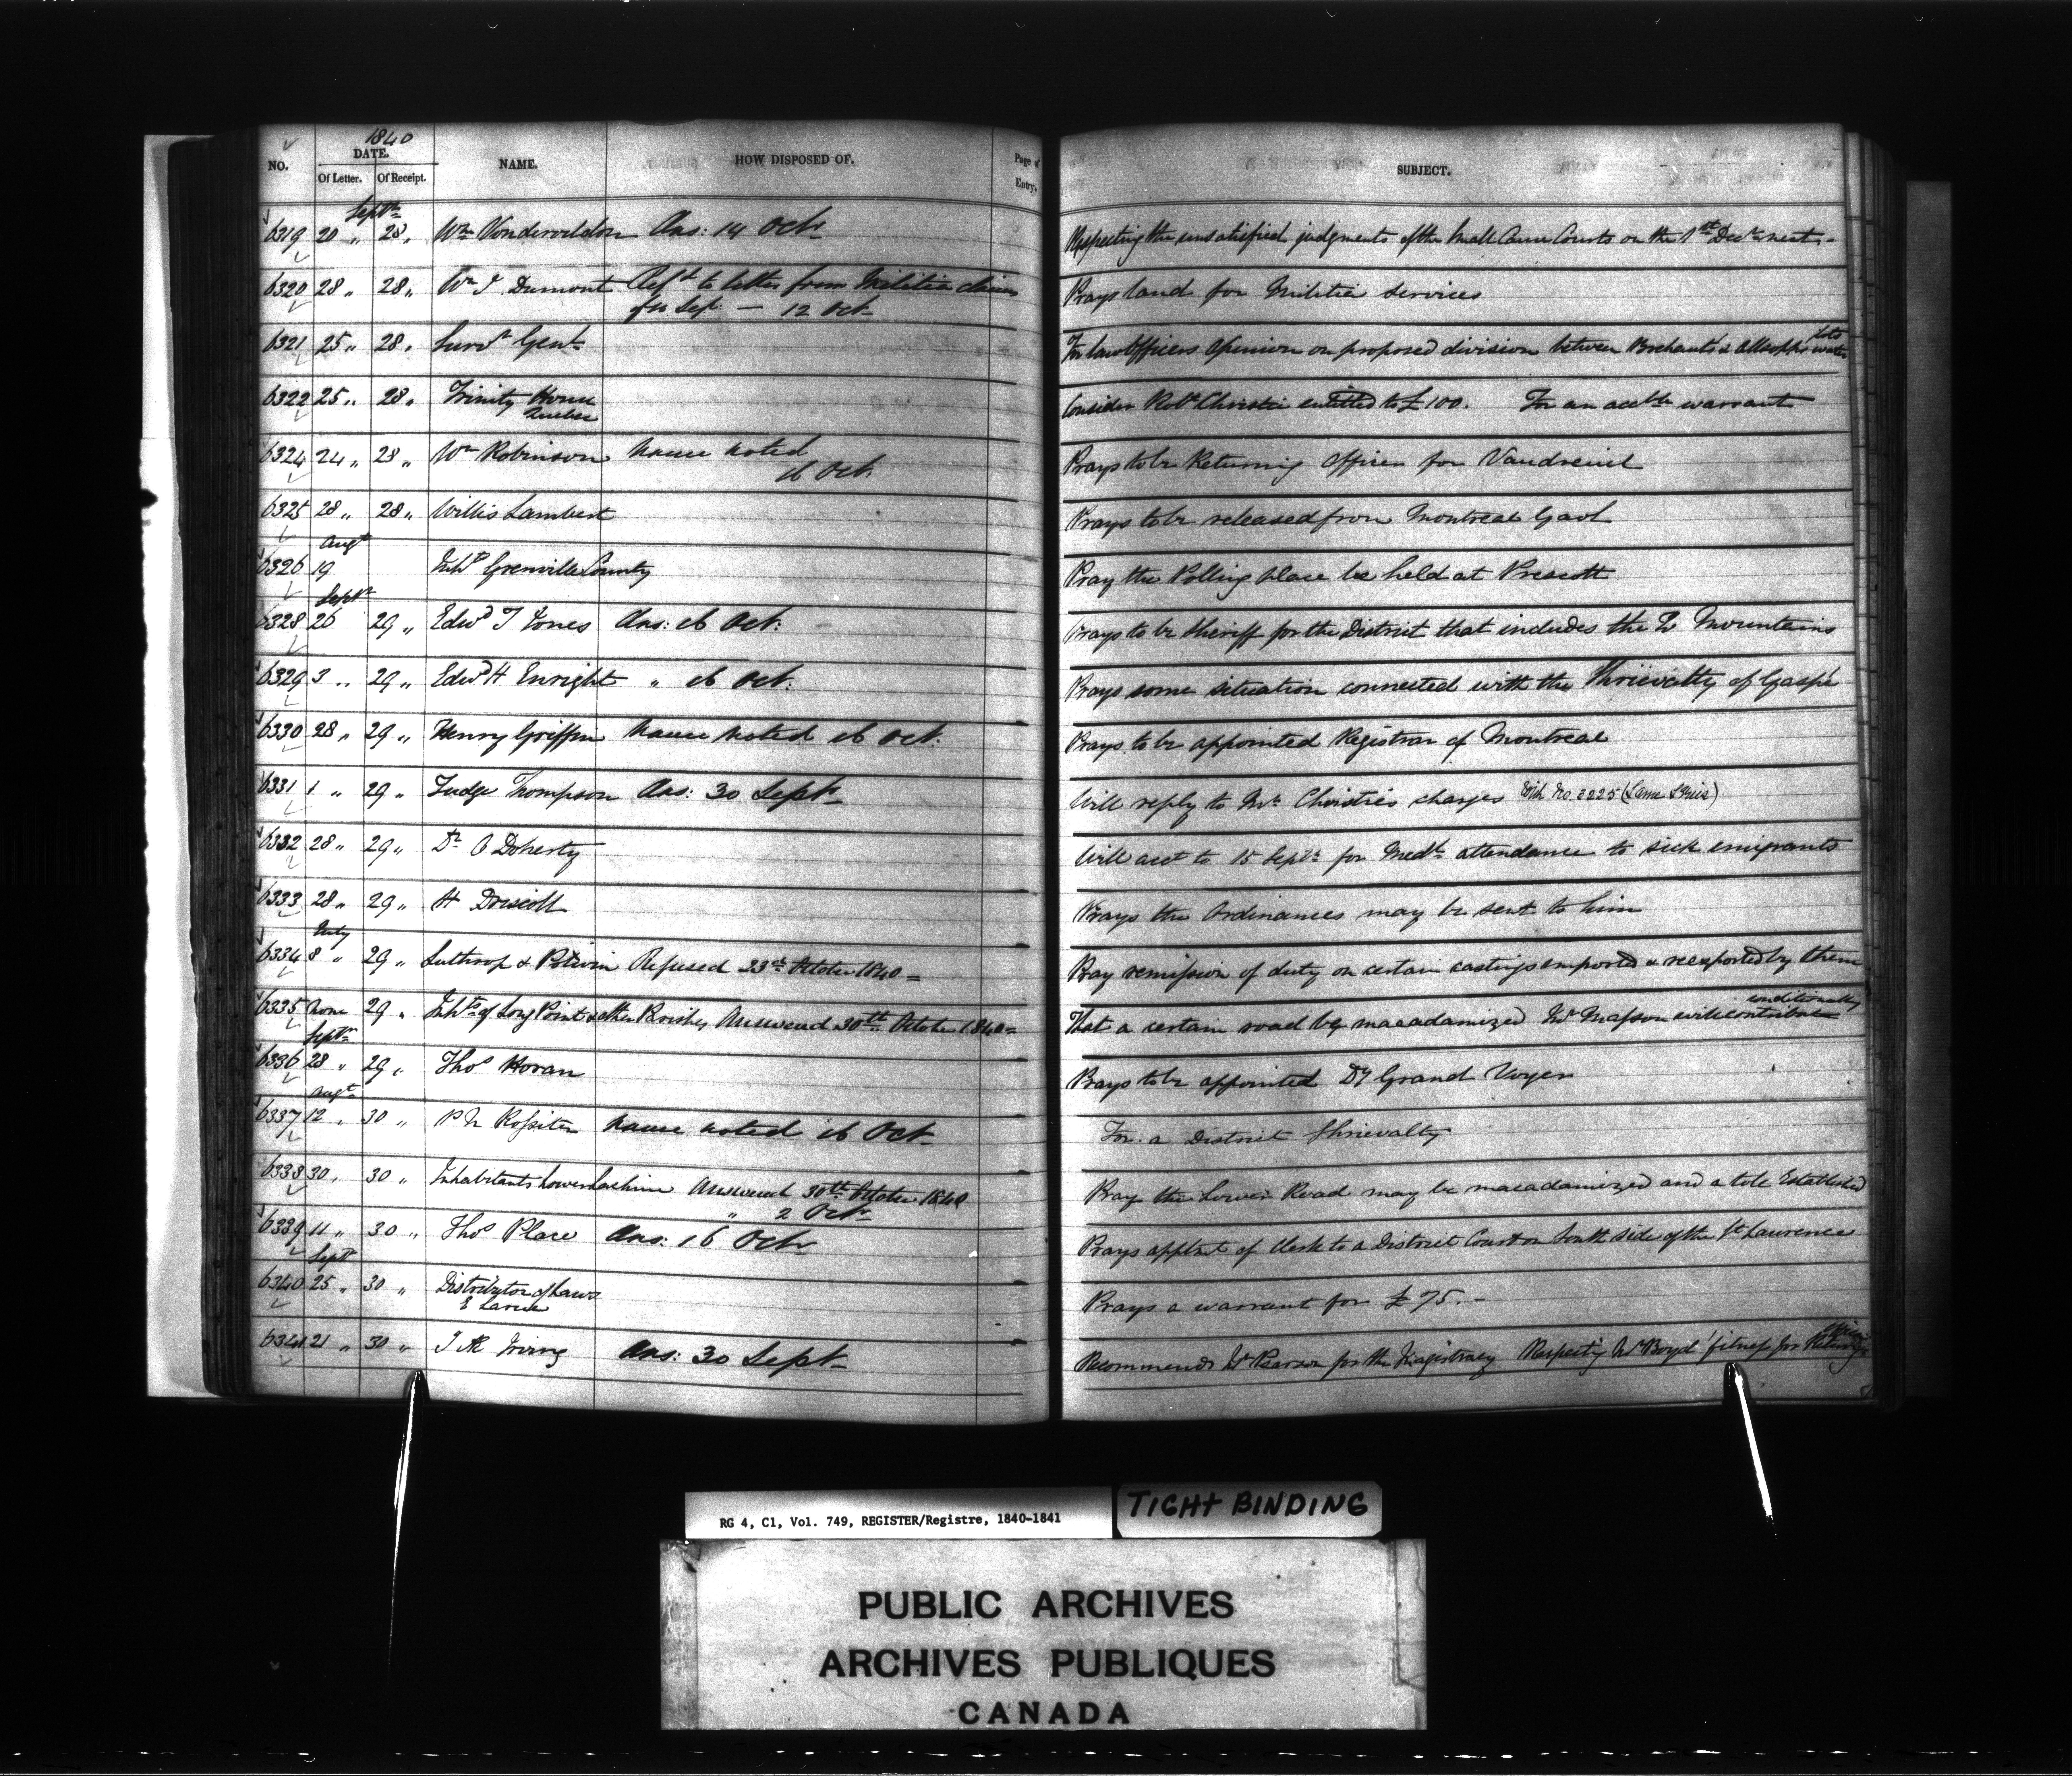 1840
NO. DATE. NAME. HOW DISPOSED OF. Page of Entry. SUBJECT.
Of Letter. Of Receipt.
Septr
6319 20 " 28 " Wm Vondervelden Ans: 14 Octr Respecting the unsatisfied judgments of the Small Cause Courts on the 1st Decr next.-
6320 28 " 28 " Dumont Refd to letter from Militia claims Prays land for Militia services
Sept — 12 Oct
6321 25 " 28 " Survr Genl For law Officers Opinion on proposed division between & Allsopp's Lots
6322 25 " 28 " Trinity House Consider Robt Christie entitled to £100. For an accble warrant
Quebec
6324 24 " 28 " Wm Robinson Name noted Prays to be Returning Officer for Vaudreuil
16 Oct.
6325 28 " 28 " Willis Lambert Prays to be released from Montreal Gaol
Augt
6326 19 Inhts Grenville County Pray the Polling place be held at Prescott
Septr
6328 26 29 " Edwd T Jones Ans: 16 Oct: Prays to be Sheriff for the District that includes the 2 Mountains
6329 3 " 29 " Edwd H Enright " 16 Oct: Prays some situation connected with the Shrievalty of Gaspé
6330 28 " 29 " Henry Griffin Name noted 16 Oct: Prays to be appointed Registrar of Montreal
6331 1 " 29 " Judge Thompson Ans: 30 Septr Will reply to Mr Christie's charges With No. 3225 (Same Series)
6332 28 " 29 " Dr O Doherty With acct to 15 Septr for Medl attendance to sick emigrants
6333 28 " 29 " H Driscoll Prays the Ordinances may be sent to him
July
6334 8 " 29 " Lathrop & Potwin Refused 23rd October 1840 = Pray remission of duty on certain castings imported & reexported by them
conditionally
6335 None 29 " Inhts of Long Point & other Parishes Answered 30th October 1840 = That a certain road be macadamized Mr Masson will contribute
Septr
6336 28 " 29 " Thos Horan Prays to be appointed Dy Grand Voyer
Augt
6337 12 " 30 " P N Rossiter Name noted 16 Oct For a District Shrievalty
6338 30 " 30 " Inhabitants Lower Lachine Answered 30th October 1840 Pray the Lower Road may be macadamized and a toll Established
" 2 Octr
6339 11 " 30 " Thos Place Ans: 16 Octr Prays apptmt of Clerk to a District Court on South side of the St Lawrence
Sept
6340 25 " 30 " Distributor of Laws Prays a warrant for £75.-
E Larue
6341 21 " 30 " J Æ Irving Ans: 30 Septr Recommends Mr Pearson for the Magistracy Respecting Mr Boyd's fitness for Returning Officer
RG 4, C1, Vol. 749, REGISTER/Registre, 1840-1841
TIGHT BINDING
PUBLIC ARCHIVES
ARCHIVES PUBLIQUES
CANADA